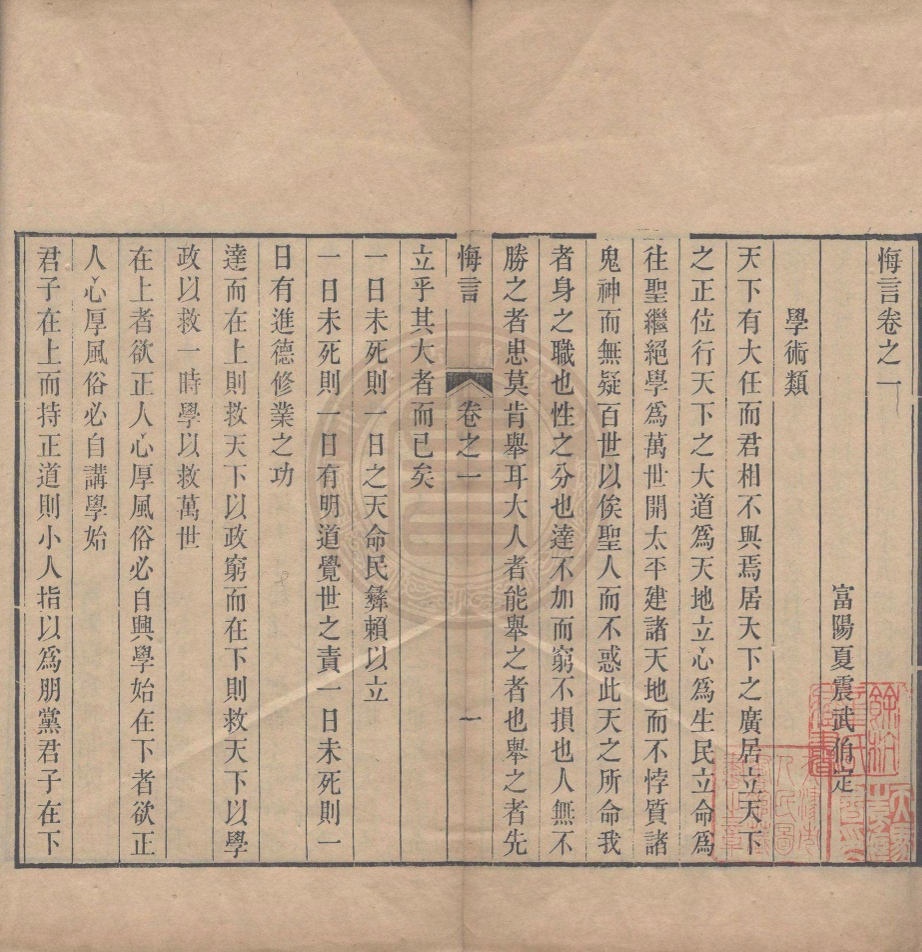 悔言卷之一
富陽夏震武伯定
學術類
天下有大任而君相不與焉居天下之廣居立天下
之正位行天下之大道爲天地立心爲生民立命爲
往聖繼絕學爲萬世開太平建諸天地而不悖質諸
鬼神而無疑百世以俟聖人而不惑此天之所命我
者身之職也性之分也達不加而窮不損也人無不
勝之者患莫肯舉耳大人者能舉之者也舉之者先
悔言 卷之一 一
立乎其大者而已矣
一日未死則一日之天命民彝賴以立
一日未死則一日有明道覺世之責一日未死則一
日有進德修業之功
達而在上則救天下以政窮而在下則救天下以學
政以救一時學以救萬世
在上者欲正人心厚風俗必自興學始在下者欲正
人心厚風俗必自講學始
君子在上而持正道則小人指以爲朋黨君子在下